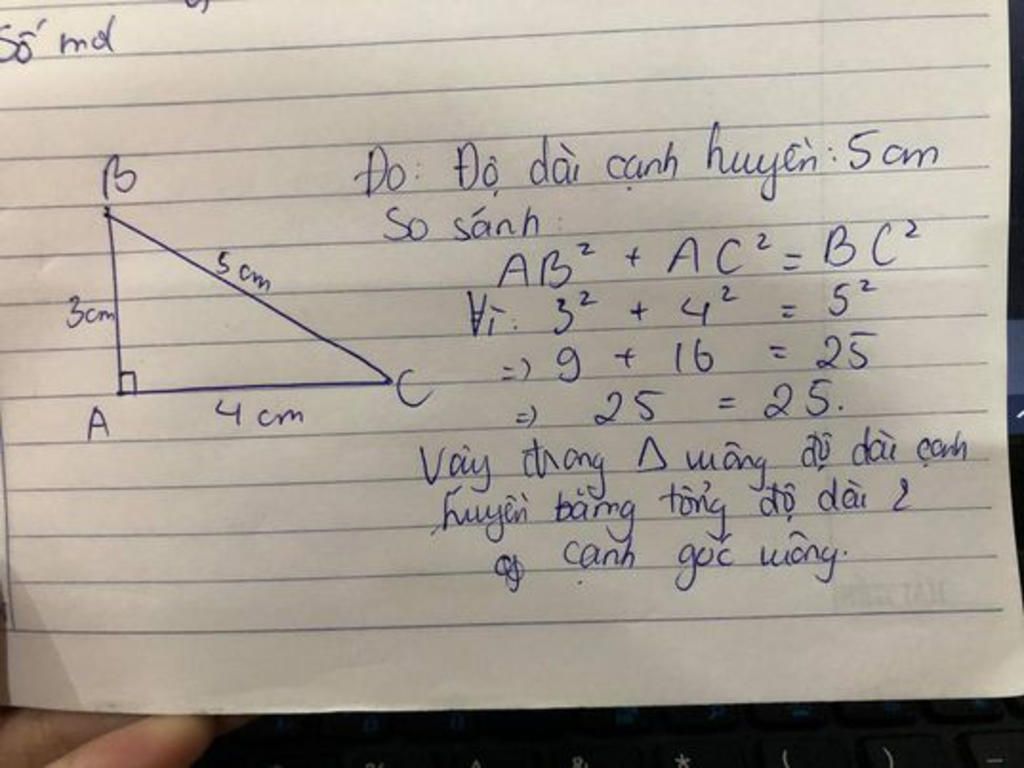 Số md
B
Đo: Độ dài cạnh huyền: 5 cm
So sánh:
5 cm
AB² + AC² = BC²
3cm
Vì: 3² + 4² = 5²
=) 9 + 16 = 25
A
4 cm
C
=) 25 = 25.
Vây trong Δ vuông độ dài cạnh
huyền bằng tổng độ dài 2
cạnh góc vuông.